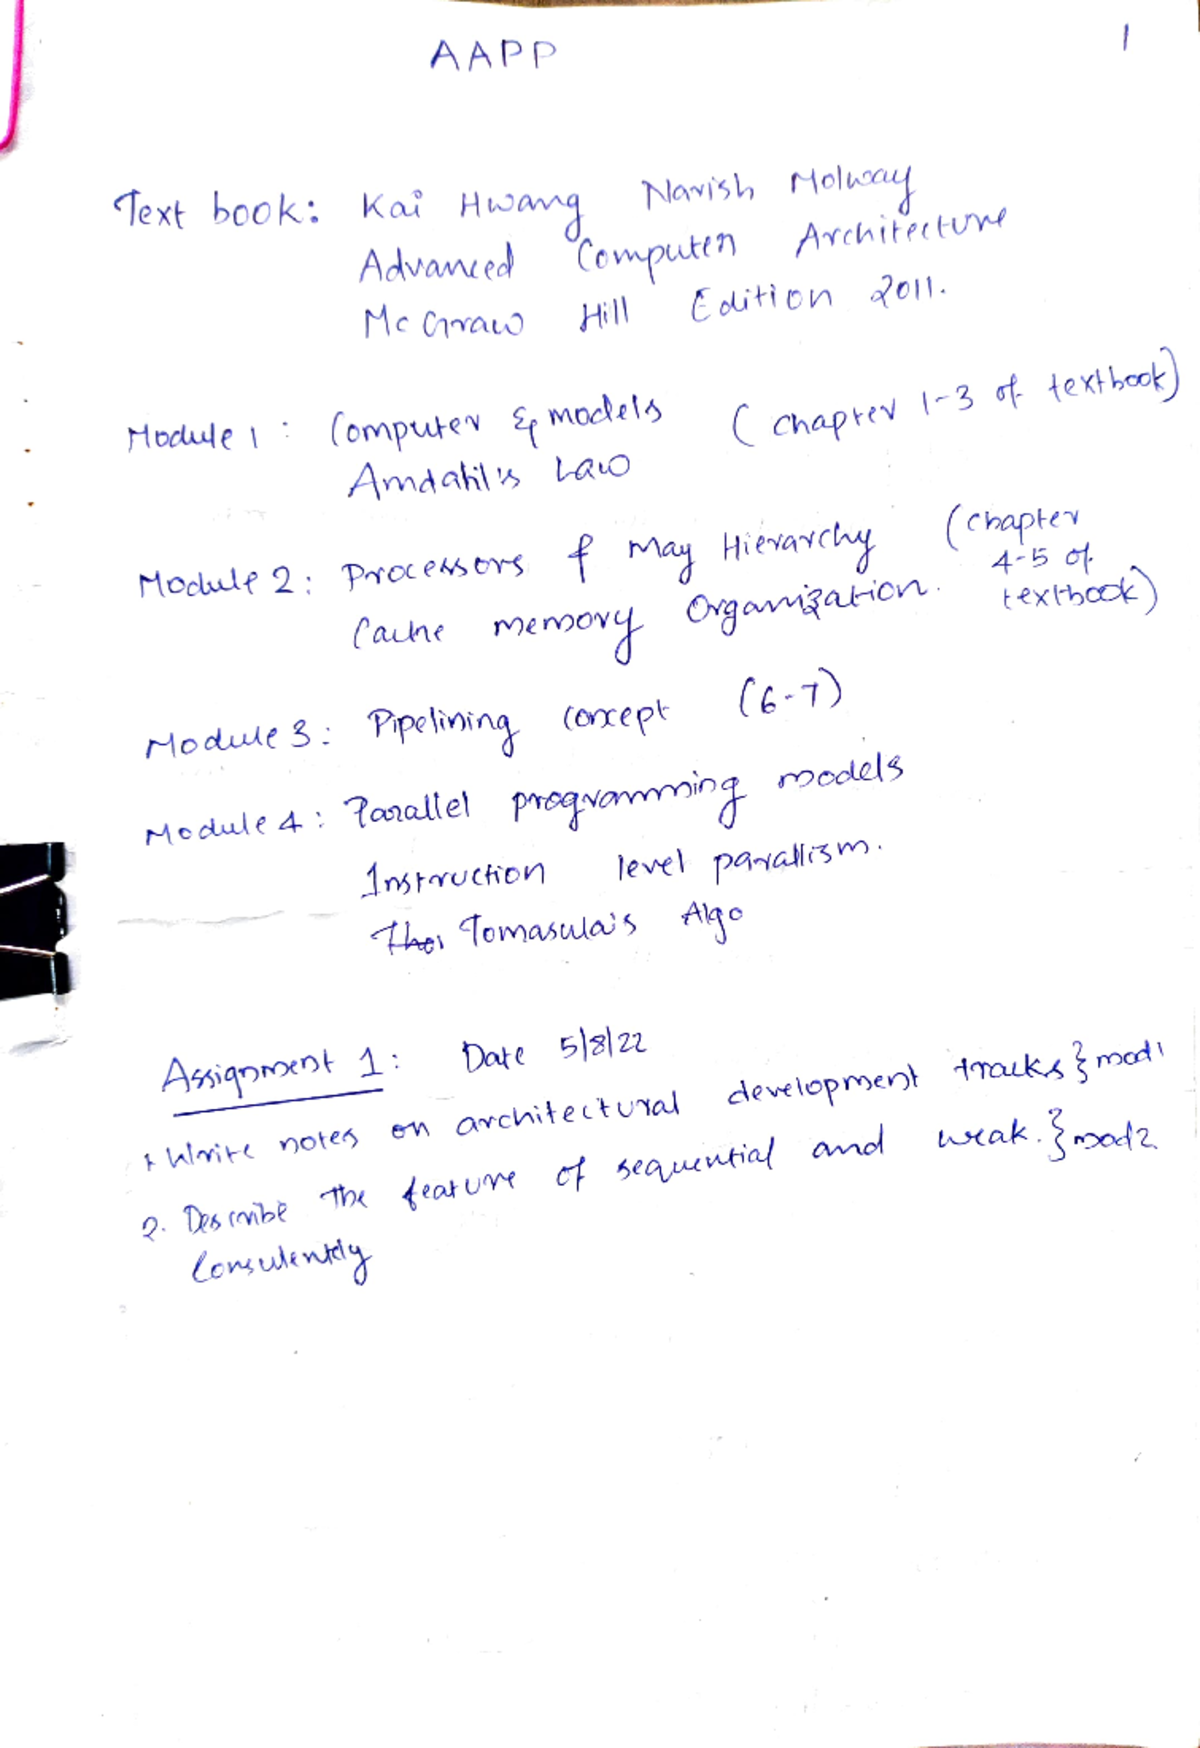 AAPP
1
Text book: Kai Hwang Narish Molway
Advanced Computer Architecture
McGraw Hill Edition 2011.
Module 1: Computer & models (chapter 1-3 of textbook)
Amdahl's Law
Module 2: Processors & May Hierarchy (chapter
4-5 of
textbook)
Cache memory Organization.
Module 3: Pipelining concept (6-7)
Module 4: Parallel programming models
Instruction level parallism.
Tomasula's Algo
Assignment 1: Date 5/8/22
1 Write notes on architectural development tracks } mod1
2. Describe the feature of sequential and weak. } mod2